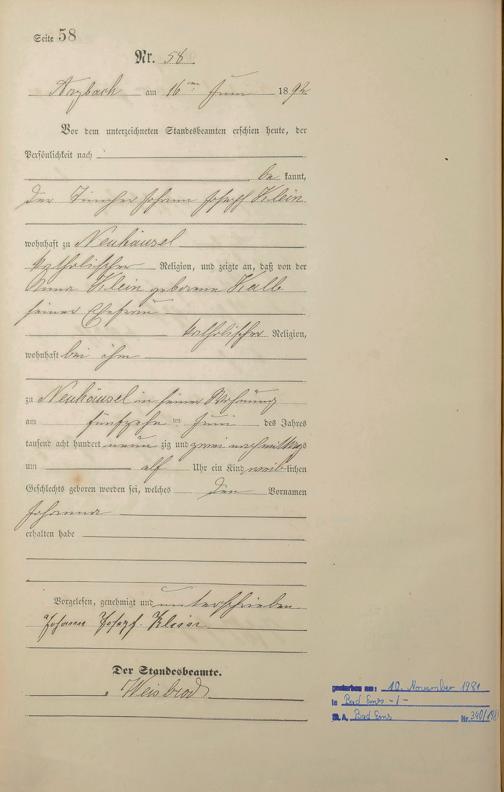 Seite 58
Nr. 58.
Arzbach am 16ten Juni 1892
Vor dem unterzeichneten Standesbeamten erschien heute, der
Persönlichkeit nach
be kannt,
der Tüncher Johann Joseph Klein
wohnhaft zu Neuhäusel
katholischer Religion, und zeigte an, daß von der
Anna Klein geborene Kalb
seiner Ehefrau
katholischer Religion,
wohnhaft bei ihm
zu Neuhäusel in seiner Wohnung
am fünfzehn ten Juni des Jahres
tausend acht hundert neun zig und zwei nachmittags
um elf Uhr ein Kind weib lichen
Geschlechts geboren worden sei, welches den Vornamen
Johanna
erhalten habe
Vorgelesen, genehmigt und unterschrieben
Johann Josef Klein
Der Standesbeamte.
Weisbrod
gestorben am: 10. November 1981
in Bad Ems -/-
St. A. Bad Ems Nr. 340/1981